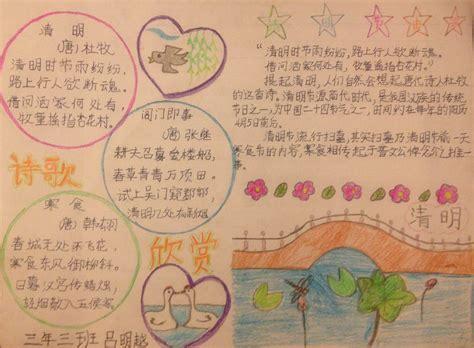 清 明
(唐) 杜牧
清明时节雨纷纷,
路上行人欲断魂。
借问酒家何处有,
牧童遥指杏花村。
阊门即事
(唐) 张继
耕夫召募逐楼船,
春草青青万项田。
试上吴门窥郡郭,
清明几处有新烟
诗歌
寒 食
(唐) 韩翃
春城无处不飞花,
寒食东风御柳斜。
日暮汉宫传蜡烛,
轻烟散入五侯家
欣赏
三年三班 吕明越
"清明时节雨纷纷,路上行人欲断魂。
借问酒家何处有,牧童遥指杏花村。"
提起清明,人们自然会想起唐代诗人杜牧
的这首诗。清明节源商代时,是我国汉族的传统
节日之一,为中国二十四节气之一,时间约在每年的阳历
4月5日前后。
清明节流行扫墓,其实扫墓乃清明节前一天
寒食节的内容,寒食相传起于晋文公悼念介之推一
事。
清明